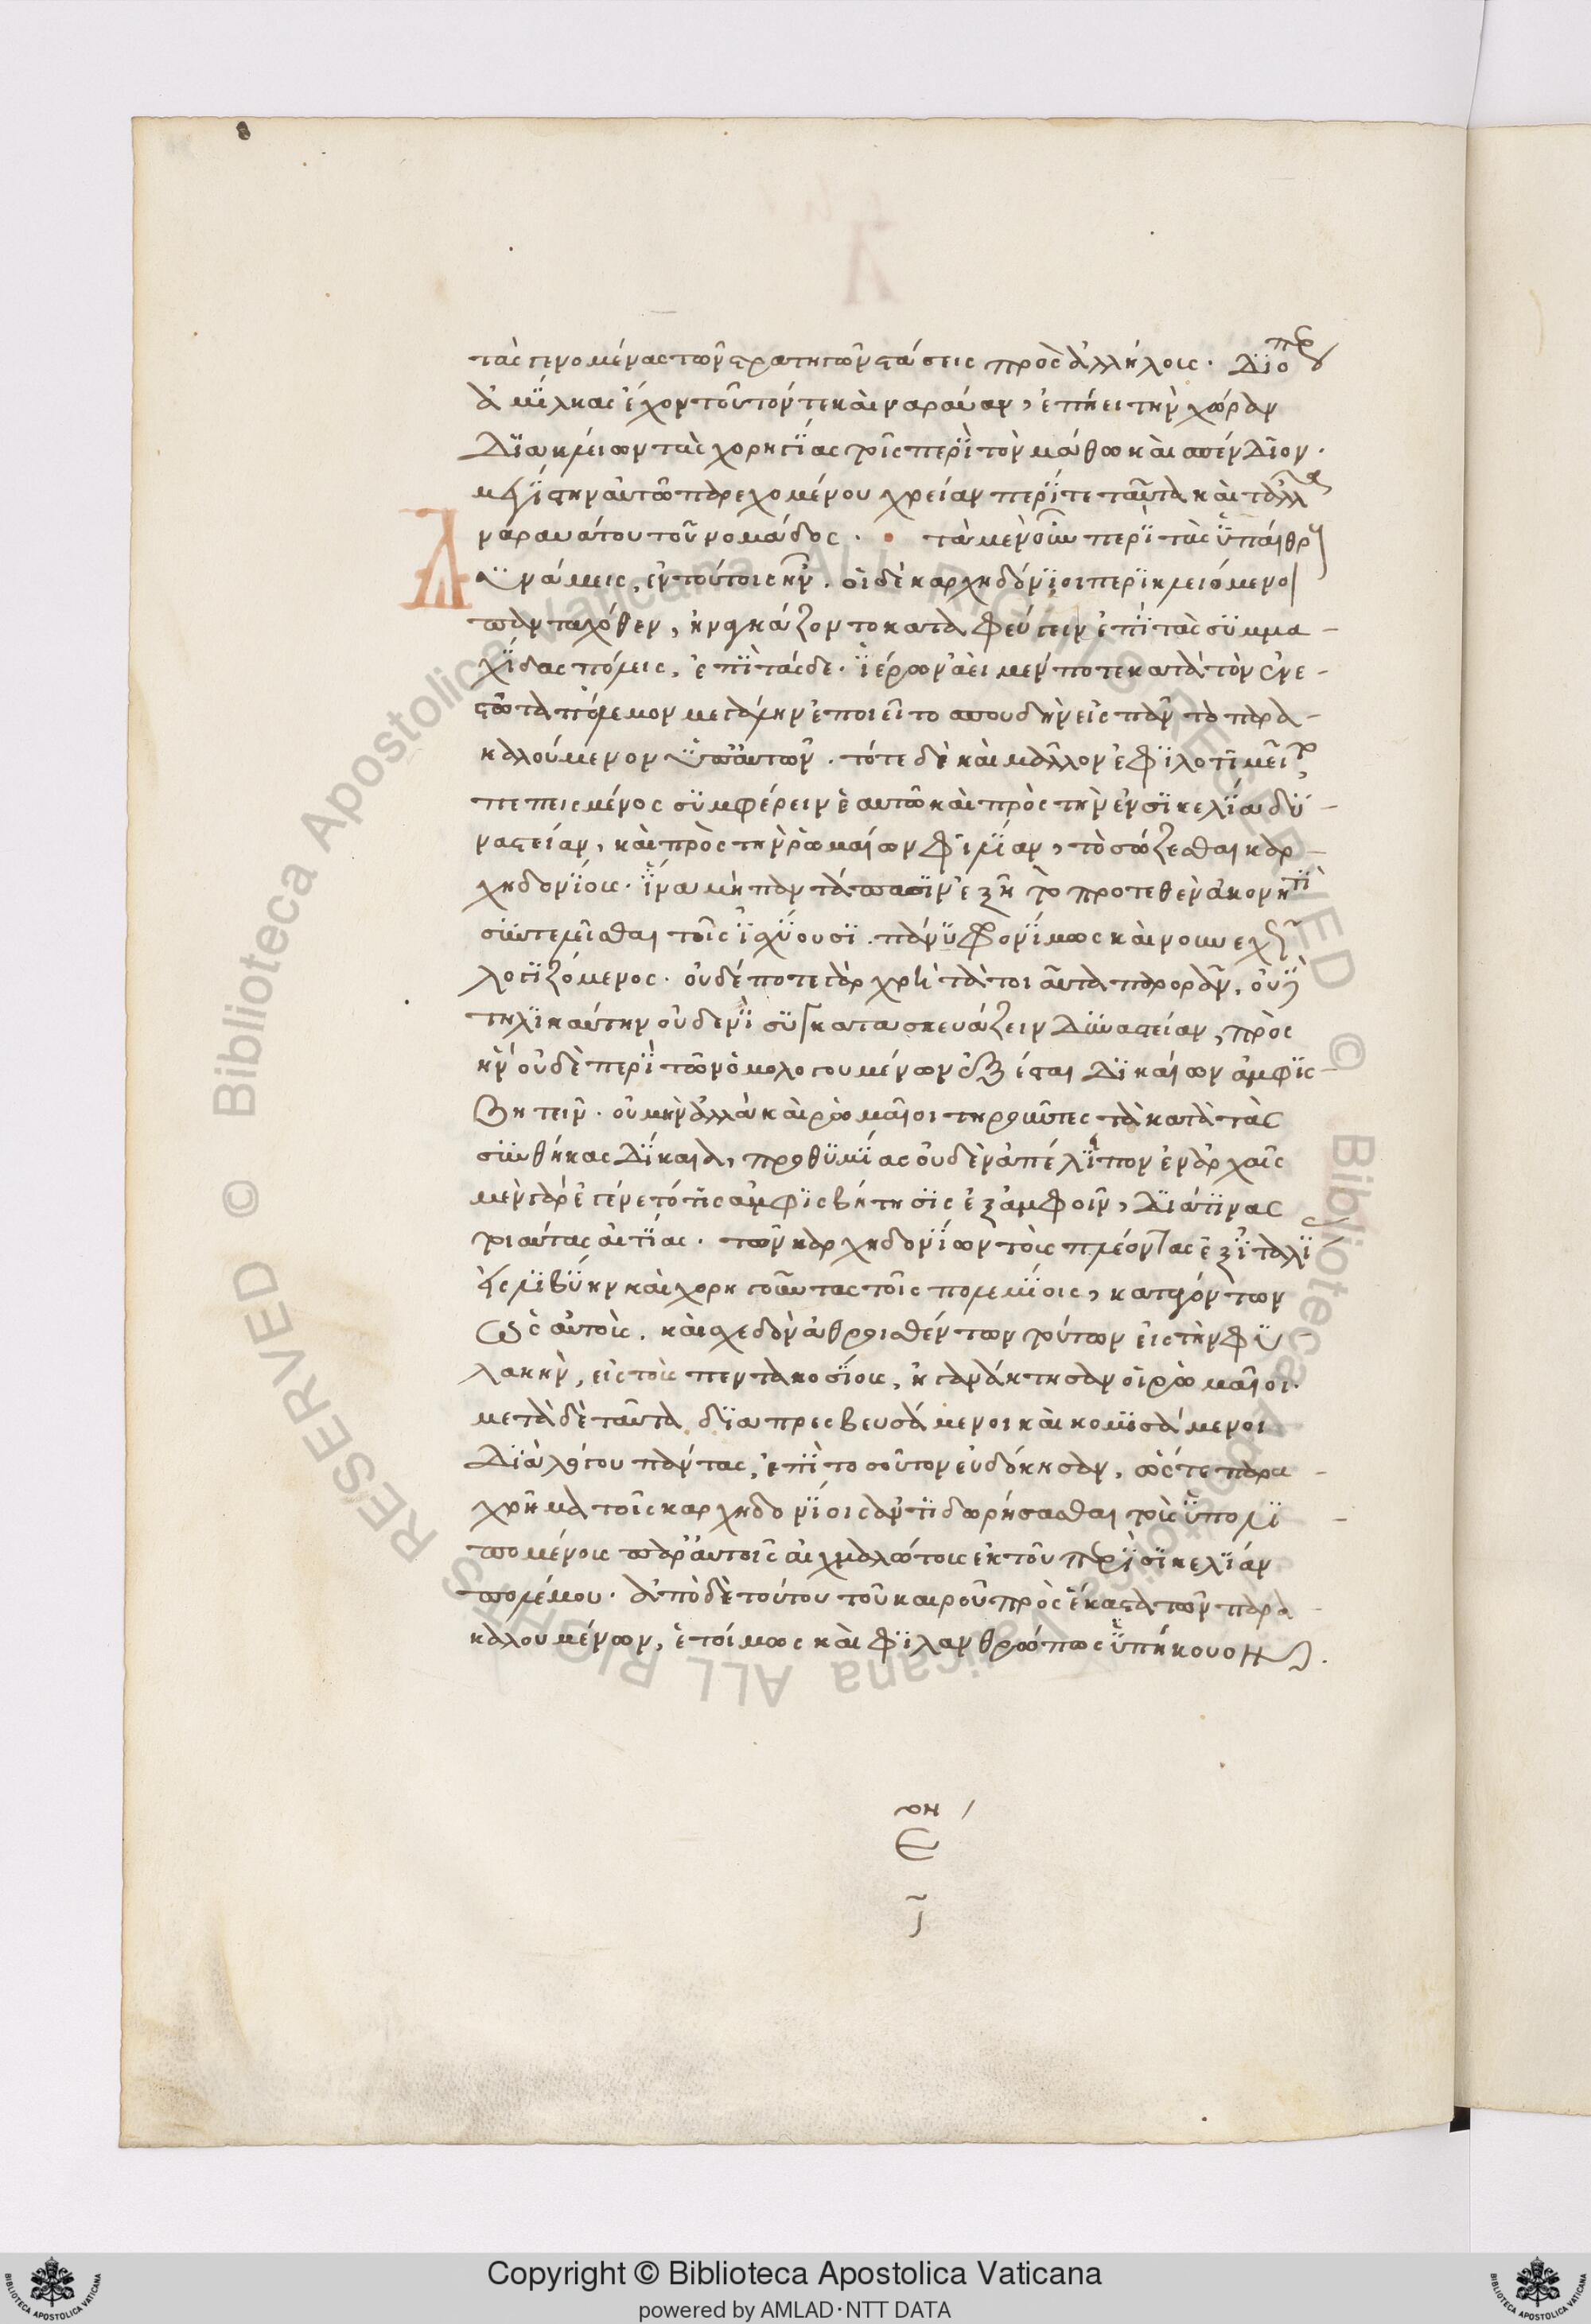 τὰς γενομένας τῶν στρατηγῶν στάσεις πρὸς ἀλλήλους. Διόπερ
Ἀμίλκας ἔχων τοῦτόν τε καὶ ναραύαν, ἐπῄει τὴν χώραν
Διακλείων τὰς χορηγίας τοῖς περὶ τὸν μάθω καὶ σπένδιον.
μεγίστην αὐτῶ παρεχομένου χρείαν περί τε ταῦτα καὶ τἄλλα
ναραυάτου τοῦ νομάδος. τὰ μὲν οὖν περὶ τὰς ὑπαίθρους
Δυνάμεις, ἐν τούτοις ἦν. οἱ δὲ καρχηδόνιοι περικλειόμενοι
πανταχόθεν, ἠναγκάζοντο καταφεύγειν ἐπὶ τὰς συμμα-
χίδας πόλεις, ἐπὶ τάσδε. ἱέρων ἀεὶ μέν ποτε κατὰ τὸν ἐνε-
στῶτα πόλεμον μεγάλην ἐποιεῖτο σπουδὴν εἰς πᾶν τὸ παρα-
καλούμενον ὑπ' αὐτῶν. τότε δὲ καὶ μᾶλλον ἐφιλοτιμεῖτο
πεπεισμένος συμφέρειν ἑαυτῶ καὶ πρὸς τὴν ἐν σικελία δυ-
ναστείαν, καὶ πρὸς τὴν ῥωμαίων φιλίαν, τὸ σώζεσθαι καρ-
χηδονίους. ἵνα μὴ παντάπασιν ἐξῆ τὸ προτεθὲν ἀκονητὶ
συντελεῖσθαι τοῖς ἰσχύουσι. πάνυ φρονίμως καὶ νουνεχῶς
λογιζόμενος. οὐδέποτε γὰρ χρὴ τὰ τοιαῦτα παρορᾶν, οὐδὲ
τηλικαύτην οὐδενὶ συγκατασκευάζειν Δυναστείαν, πρὸς
ἣν οὐδὲ περὶ τῶν ὁμολογουμένων ἐξέσται Δικαίων ἀμφισ-
βητεῖν. οὐ μὴν ἀλλὰ καὶ ῥωμαῖοι τηροῦντες τὰ κατὰ τὰς
συνθήκας Δίκαια, προθυμίας οὐδὲν ἀπέλιπον ἐν ἀρχαῖς
μὲν γὰρ ἐγένετό τις ἀμφισβήτησις ἐξ ἀμφοῖν, Διά τινας
τοιαύτας αἰτίας. τῶν καρχηδονίων τοὺς πλέοντας ἐξ ἰταλίας
εἰς λιβύην καὶ χορηγοῦντας τοῖς πολεμίοις, καταγόντων
ὡς αὑτούς. καὶ σχεδὸν ἁθροισθέντων τούτων εἰς τὴν φυ-
λακὴν, εἰς τοὺς πεντακοσίους, ἠγανάκτησαν οἱ ῥωμαῖοι.
μετὰ δὲ ταῦτα διαπρεσβευσάμενοι καὶ κομισάμενοι
Διὰ λόγου πάντας, ἐπὶ τοσοῦτον εὐδόκησαν, ὥστε παρα-
χρῆμα τοῖς καρχηδονίοις ἀντιδωρήσασθαι τοὺς ὑπολι-
πομένους παρ' αὐτοῖς αἰχμαλώτους ἐκ τοῦ περὶ σικελίαν
πολέμου. ἀπὸ δὲ τούτου τοῦ καιροῦ πρὸς ἕκαστα τῶν παρα-
καλουμένων, ἑτοίμως καὶ φιλανθρώπως ὑπήκουον.